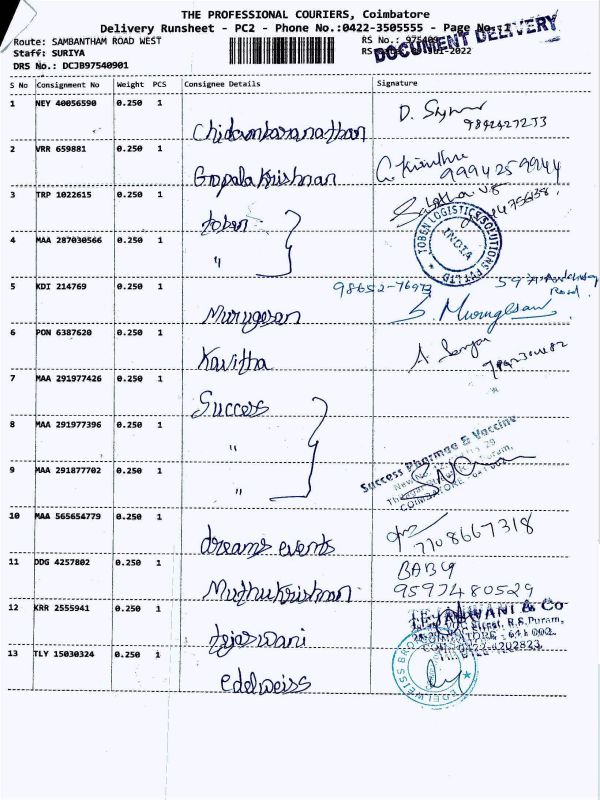 THE PROFESSIONAL COURIERS, Coimbatore
Delivery Runsheet - PC2 - Phone No.:0422-3505555 - Page No.:1
DOCUMENT DELIVERY
Route: SAMBANTHAM ROAD WEST
RS No.: 975409
Staff: SURIYA
2022
DRS No.: DCJB97540901
S No Consignment No Weight PCS Consignee Details Signature
1 NEY 40056590 0.250 1 Chidambaranathan
2 VRR 659881 0.250 1 Gopala Krishnan 9994259944
3 TRP 1022615 0.250 1 toben
TOBEN LOGISTICS SOLUTIONS PVT LTD
INDIA
4 MAA 287030566 0.250 1 "
98652-76973
Road.
5 KDI 214769 0.250 1 Murugesan S. Murugesan
6 PON 6387620 0.250 1 Kavitha
7 MAA 291977426 0.250 1 Success
8 MAA 291977396 0.250 1 "
9 MAA 291877702 0.250 1 "
Success Pharma & Vaccine
COIMBATORE
10 MAA 565654779 0.250 1 dreams events 7708667318
11 DDG 4257802 0.250 1 Muthukrishnan BABY
9597480529
12 KRR 2555941 0.250 1 tejaswani
TEJASWANI & Co
Street, R.S.Puram,
COIMBATORE - 641 002.
13 TLY 15030324 0.250 1 edelweiss
EDELWEISS BRO